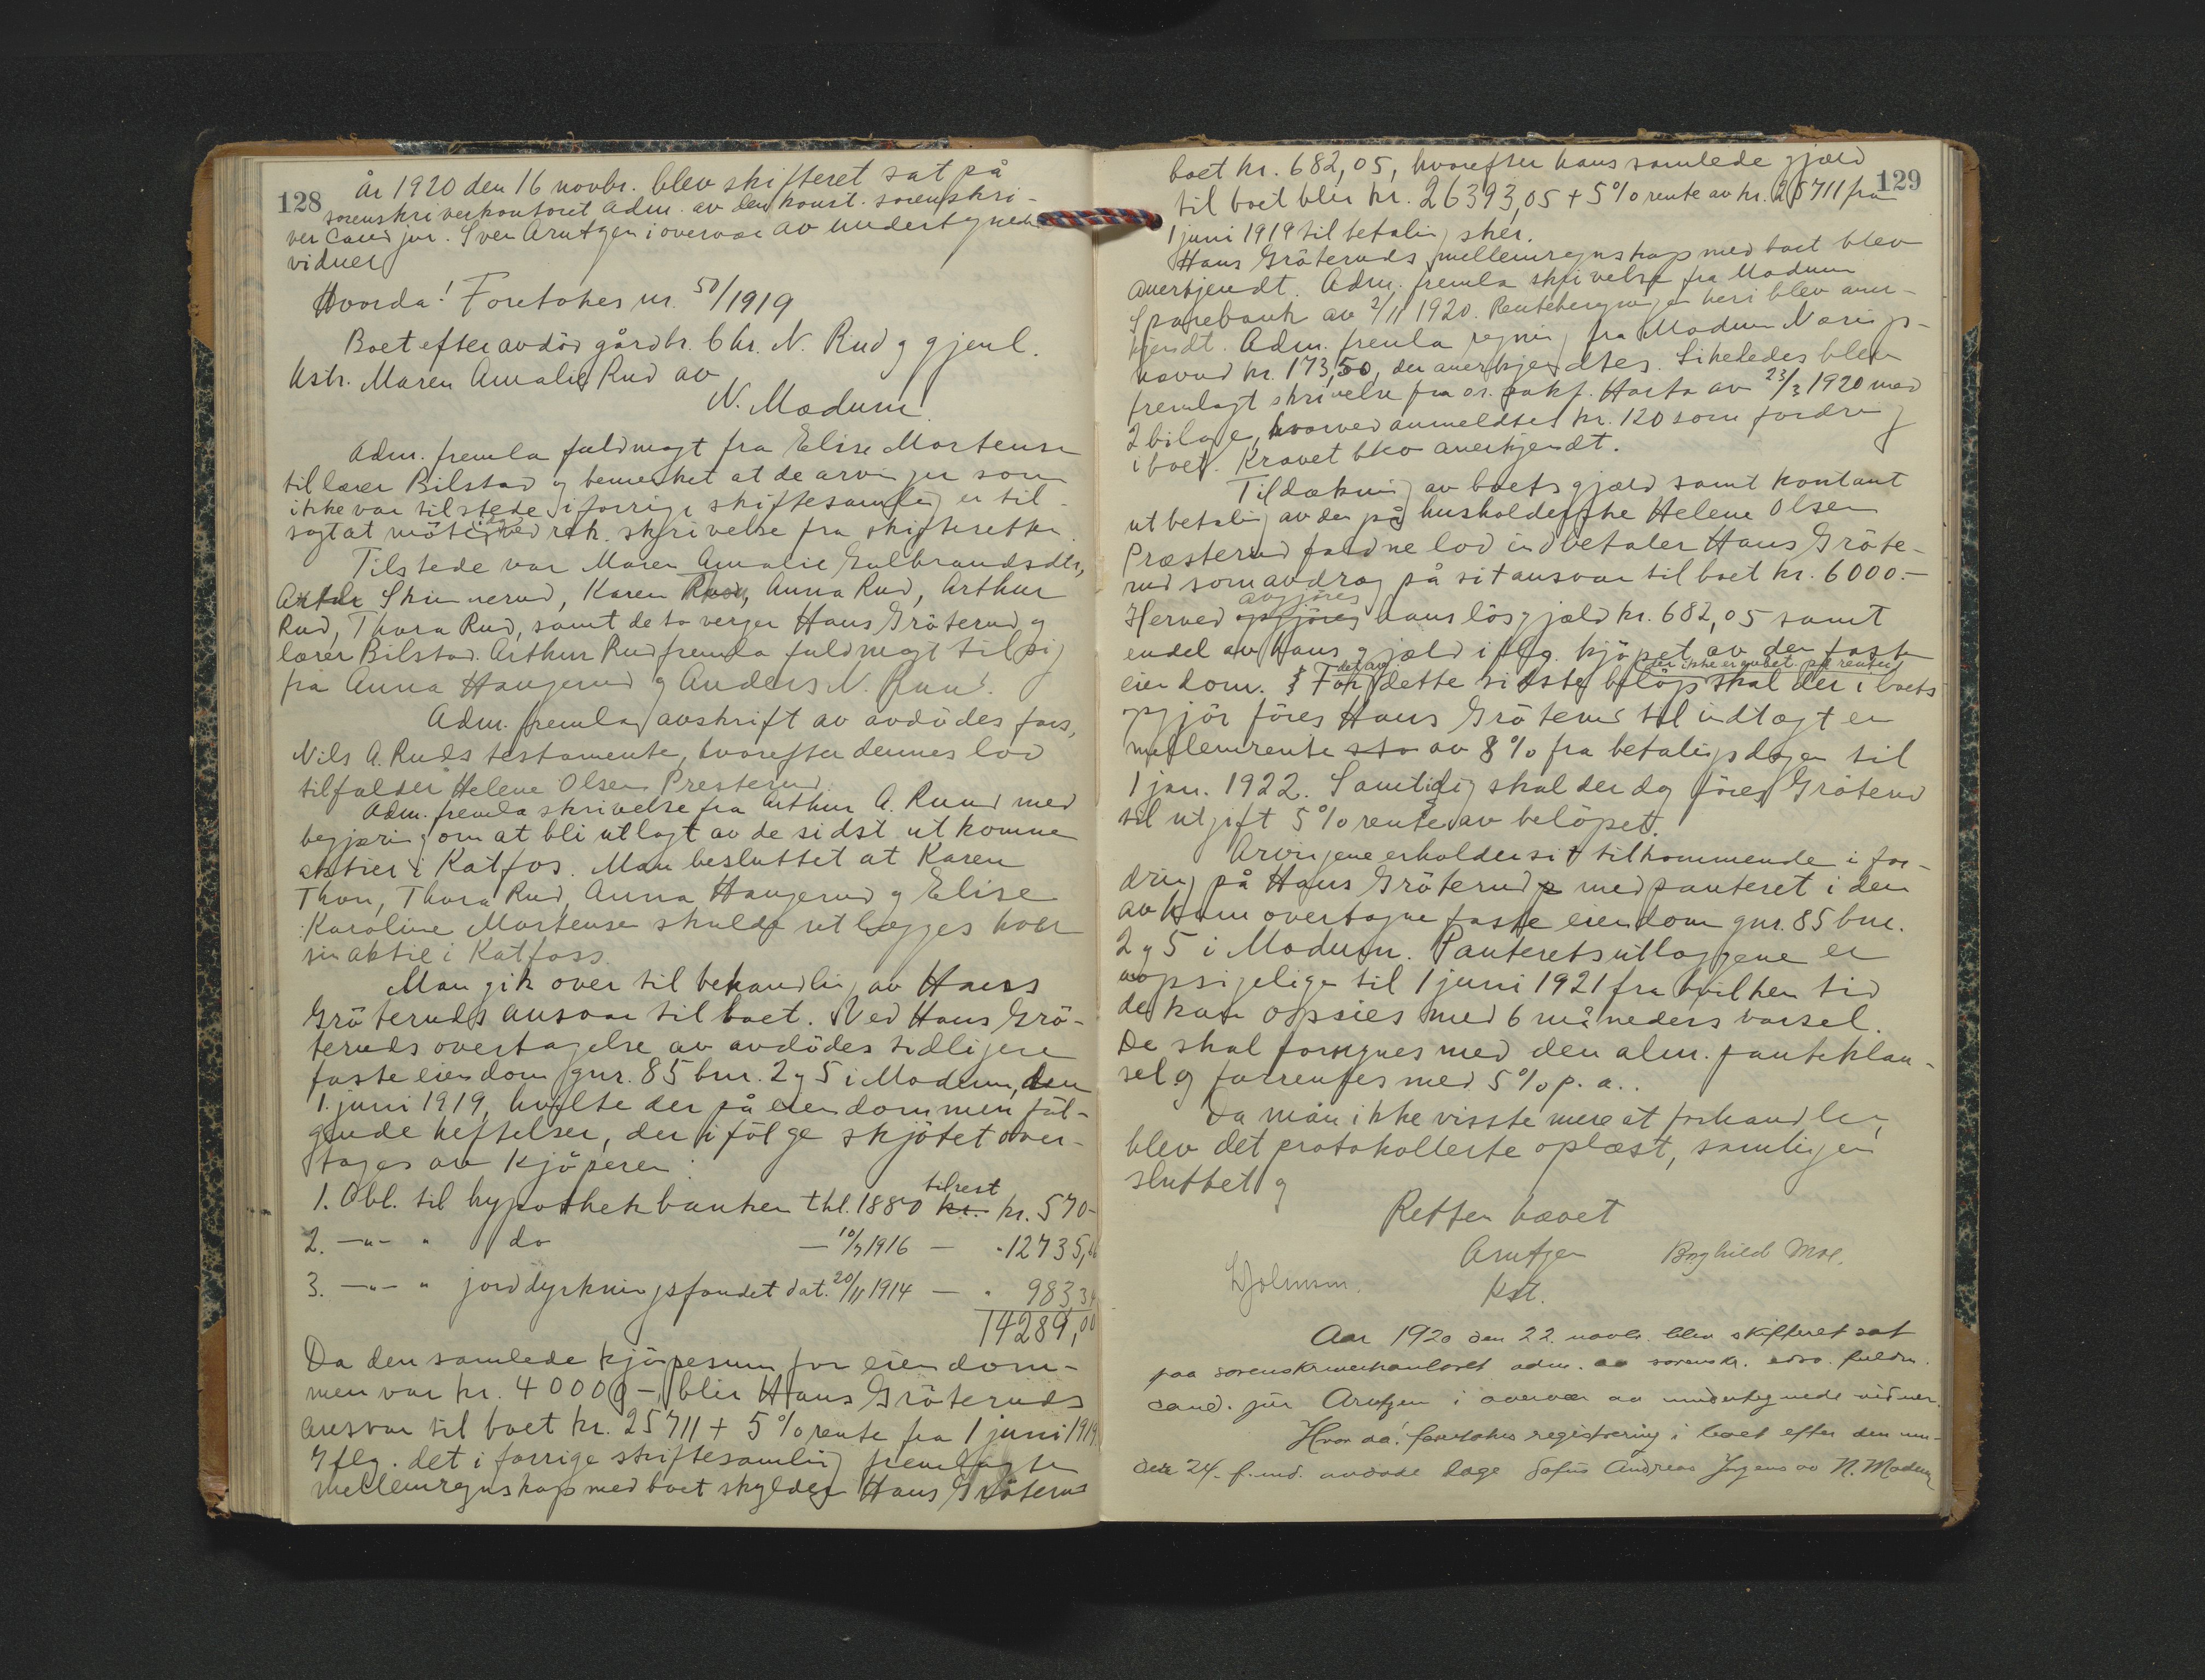 128
år 1920 den 16 novbr. blev skifteret sat på
sorenskriverkontoret adm. av den konst. sorenskri-
ver cand jur. Sven Arntzen i overvær av undertegnede
vidner
Hvorda! Foretokes nr. 50/1919
Boet efter avdöd gårdbr. Chr. N. Rud og gjenl.
Hstr. Maren Amalie Rud av
N. Modum.
Adm. fremla fuldmagt fra Elise Mortensen
til lærer Bilstad og bemerket at de arvinger som
ikke var tilstede i forrige skiftesamling er til-
sagt at möte i dag ved rek. skrivelse fra skifteretten.
Tilstede var Maren Amalie Gulbrandsdtr,
Skinnerud, Karen Rud, Anna Rud, Arthur
Rud, Thora Rud, samt de to verger Hans Gröterud og
lærer Bilstad. Arthur Rud fremla fuldmagt til sig
fra Anna Haugerud og Anders N. Ruud.
Adm. fremla avskrift av avdödes fars,
Nils A. Ruds testamente, hvorefter dennes lod
tilfalder Helene Olsen Presterud.
Adm. fremla skrivelse fra Arthur A. Ruud med
begjæring om at bli utlagt av de sidst utkomne
aktier i Katfos. Man besluttet at Karen
Thon, Thora Rud, Anna Haugerud og Elise
Karoline Mortensen skulde utlægges hver
sin aktie i Katfoss.
Man gik over til behandling av Hans
Gröteruds ansvar til boet. Ved Hans Grö-
teruds overtagelse av avdödes tidligere
faste eiendom gnr. 85 bnr. 2 og 5 i Modum, den
1. juni 1919, hvilte der på eiendommen föl-
gende heftelser, der ifölge skjötet over-
tages av kjöperen:
1. Obl. til hypothekbanken thl. 1880 kr. tilrest kr. 570-
2. -"- " do - 10/7 1916 - " 12735,66
3. -"- " jorddyrkningsfondet dat. 20/11 1914 - " 983,34
14289,00
Da den samlede kjöpesum for eiendom-
men var kr. 40000,- blir Hans Gröteruds
ansvar til boet kr. 25711 + 5% rente fra 1 juni 1919.
Iflg. det i forrige skiftesamling fremlagte
mellemregnskap med boet skylder Hans Gröterud
129
boet kr. 682,05, hvorefter hans samlede gjæld
til boet blir kr. 26393,05 + 5% rente av kr. 25711 fra
1 juni 1919 til betaling sker.
Hans Gröteruds mellemregnskap med boet blev
anerkjendt. Adm. fremla skrivelse fra Modum
Sparebank av 2/11 1920. Renteberegningen heri blev aner-
kjendt. Adm. fremla regning fra Modum Værgs-
kr. 173,50, der anerkjendtes. Likeledes blev
fremlagt skrivelse fra or. sakf. Harto av 23/3 1920 med
2 bilage, hvorved anmeldtes kr. 120 som fordring
i boet. Kravet blev anerkjendt.
Til dækning av boets gjæld samt kontant
utbetaling av den på husholderske Helene Olsen
Præsterud faldne lod indbetaler Hans Gröte-
rud som avdrag på sit ansvar til boet kr. 6000.-
Herved opgjöres avgjöres hans lösgjæld kr. 682,05 samt
endel av hans gjæld iflg. kjöpet av den faste
eiendom. For det av dette sidste belöp der ikke er anvendt på renter skal der i boets
opgjör föres Hans Gröterud til indtægt en
mellemrente av 8% fra betalingsdagen til
1 jan. 1922. Samtidig skal der dog föres Gröterud
til utgift 5% rente av belöpet.
Arvingene erholder sit tilkommende i for-
dring på Hans Gröterud med panteret i den
av ham overtagne faste eiendom gnr. 85 bnr.
2 og 5 i Modum. Panteretsutlæggene er
uopsigelige til 1 juni 1921 fra hvilken tid
de kan opsies med 6 måneders varsel.
De skal forsynes med den alm. panteklau-
sel og forrentes med 5% p. a..
Da man ikke visste mere at forhandle,
blev det protokollerte oplæst, samlingen
sluttet og
Retten hævet
Arntzen Borghild Moe.
Kst.
Aar 1920 den 22. novbr. blev skifteret sat
paa sorenskriverkontoret adm. av sorenskr. edsv. fuldm.
cand. jur Arntzen i overvær av undertegnede vidner.
Hvor da! foretokes registrering i boet efter den un-
der 24. f. md. avdöde Sofus Andreas av N. Modum